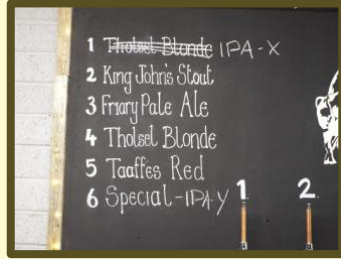 1 Tholsel Blonde IPA-X
2 King John's Stout
3 Friary Pale Ale
4 Tholsel Blonde
5 Taaffes Red
6 Special-IPA-Y
1 2